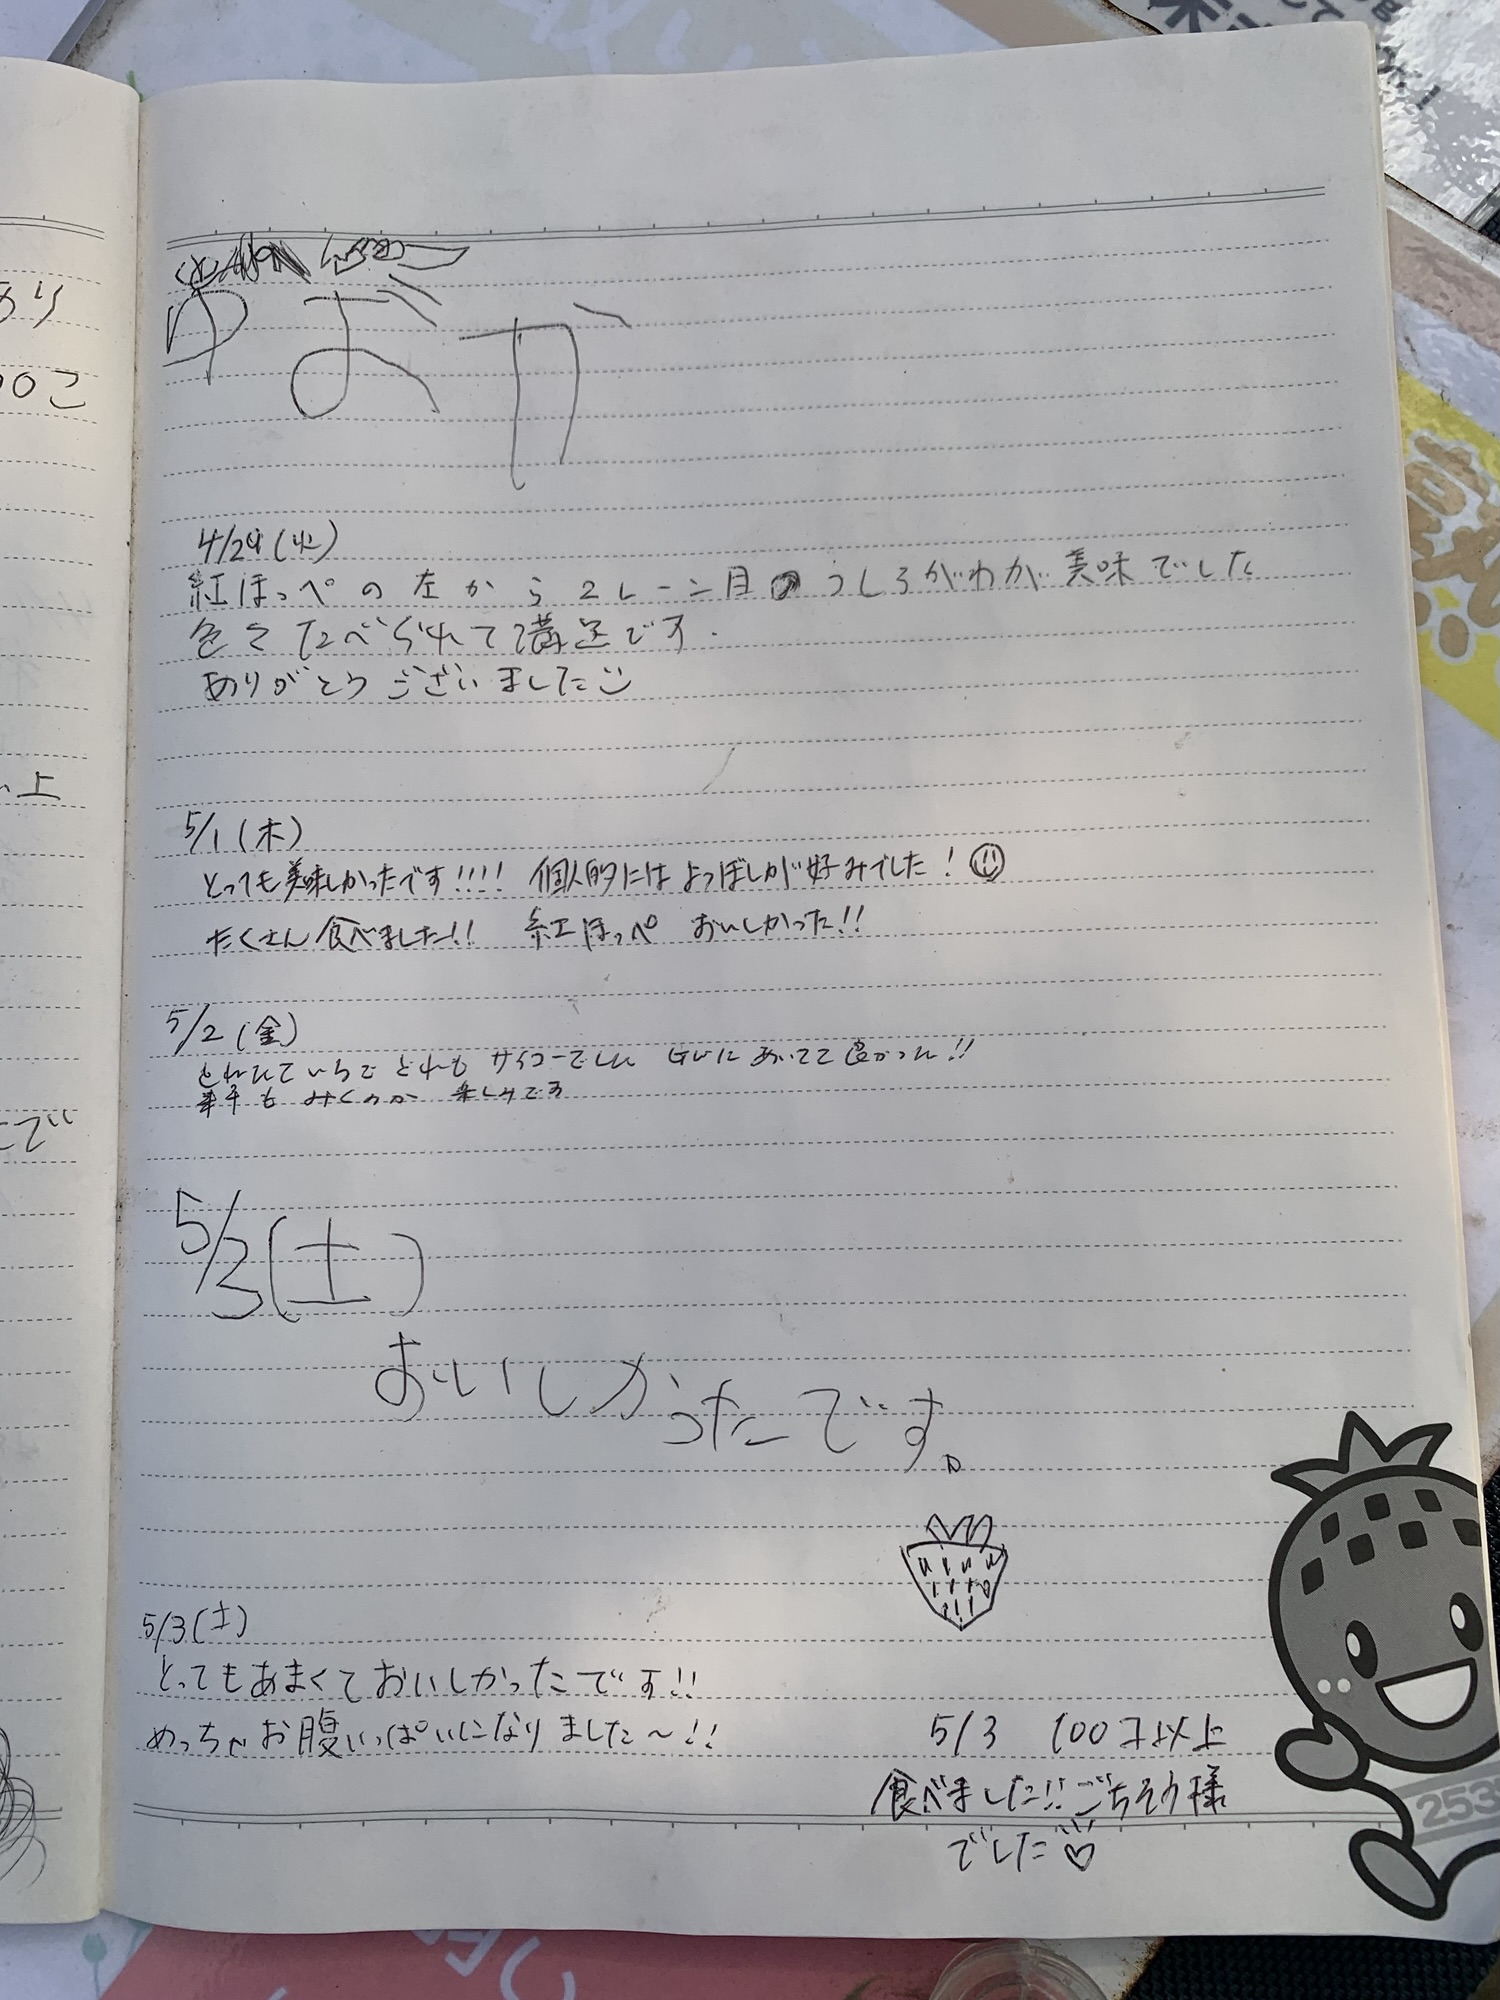 4/29(火)
紅ほっぺの左から2レーン目うしろがわが美味でした
色々たべられて満足です.
ありがとうございました
5/1(木)
とっても美味しかったです!!!! 個人的にはよつぼしが好みでした!
たくさん食べました!! 紅ほっぺ おいしかった!!
5/2(金)
どれも サイコーでした GWに あいてて 良かった!!
楽しみです
5/3(土)
おいしかったです。
5/3(土)
とってもあまくておいしかったです!!
めっちゃお腹いっぱいになりました〜!!
5/3 100コ以上
食べました!!ごちそう様
でした♡
あり
00こ
上
253